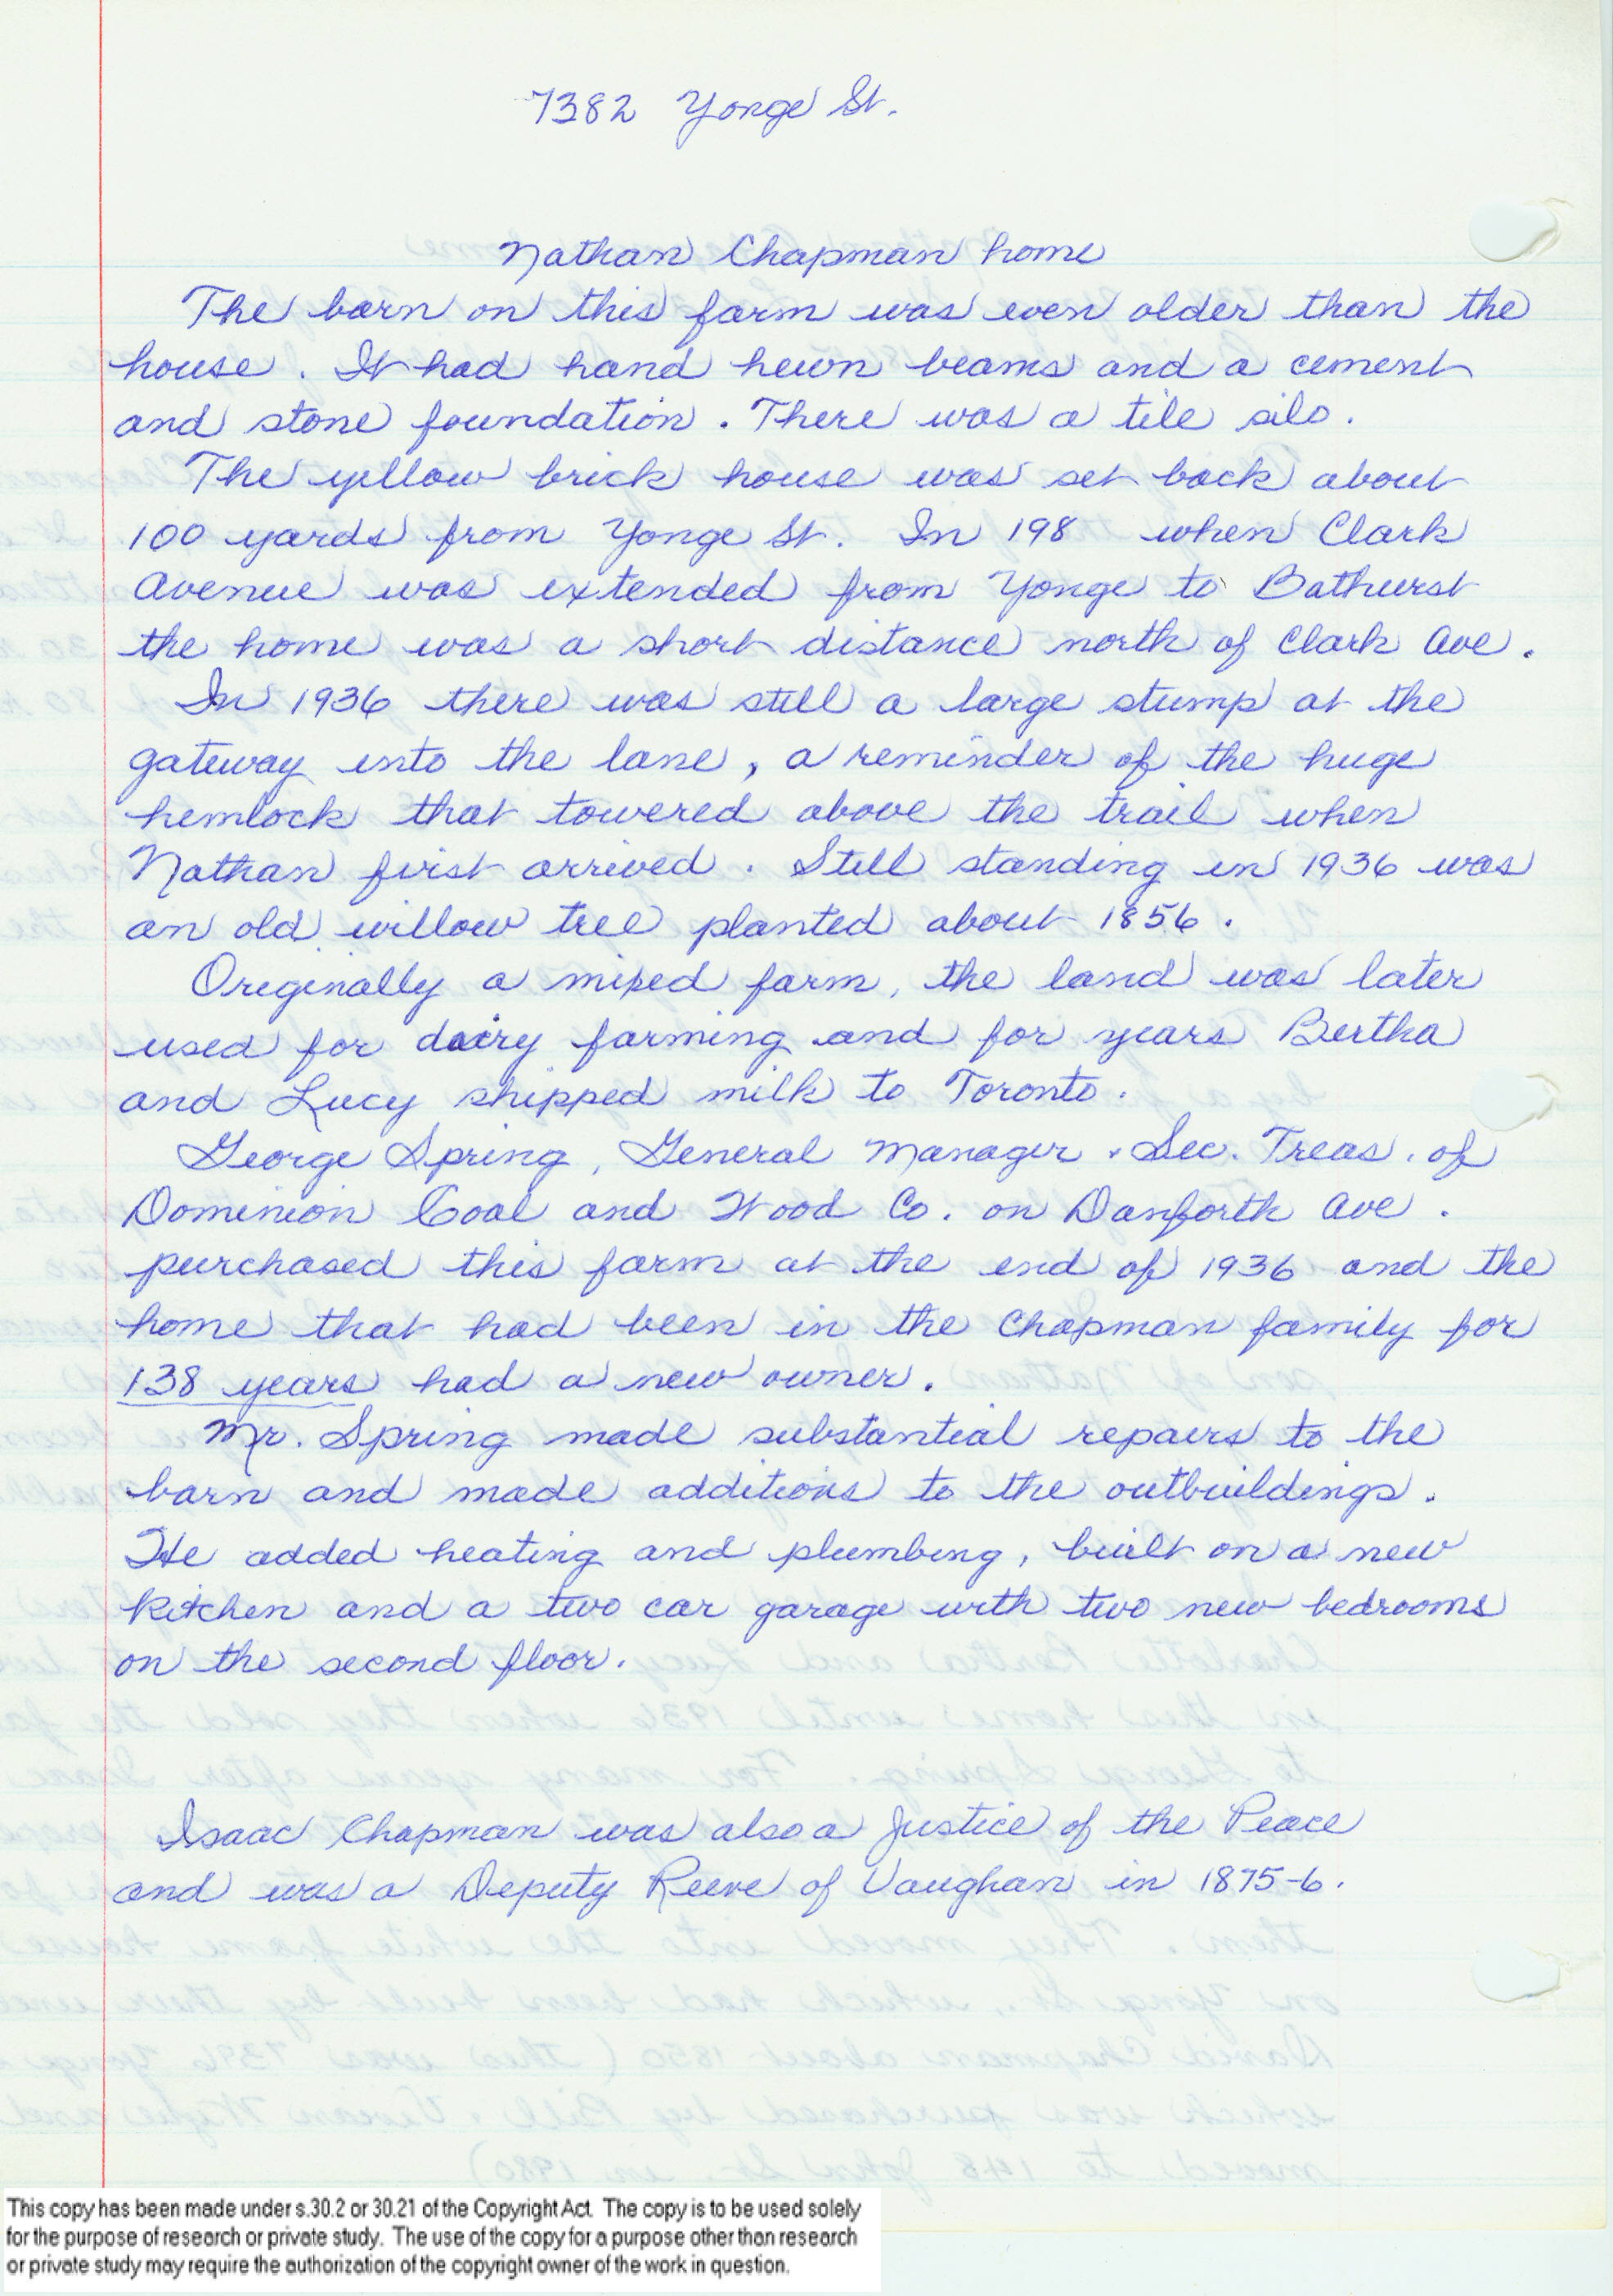 7382 Yonge St.
Nathan Chapman home
The barn on this farm was even older than the
house. It had hand hewn beams and a cement
and stone foundation. There was a tile silo.
The yellow brick house was set back about
100 yards from Yonge St. In 198 when Clark
Avenue was extended from Yonge to Bathurst
the home was a short distance north of Clark Ave.
In 1936 there was still a large stump at the
gateway into the lane, a reminder of the huge
hemlock that towered above the trail when
Nathan first arrived. Still standing in 1936 was
an old willow tree planted about 1856.
Originally a mixed farm, the land was later
used for dairy farming and for years Bertha
and Lucy shipped milk to Toronto.
George Spring, General Manager + Sec. Treas. of
Dominion Coal and Wood Co. on Danforth Ave.
purchased this farm at the end of 1936 and the
home that had been in the Chapman family for
138 years had a new owner.
Mr. Spring made substantial repairs to the
barn and made additions to the outbuildings.
He added heating and plumbing, built on a new
kitchen and a two car garage with two new bedrooms
on the second floor.
Isaac Chapman was also a Justice of the Peace
and was a Deputy Reeve of Vaughan in 1875-6.
This copy has been made under s.30.2 or 30.21 of the Copyright Act. The copy is to be used solely
for the purpose of research or private study. The use of the copy for a purpose other than research
or private study may require the authorization of the copyright owner of the work in question.